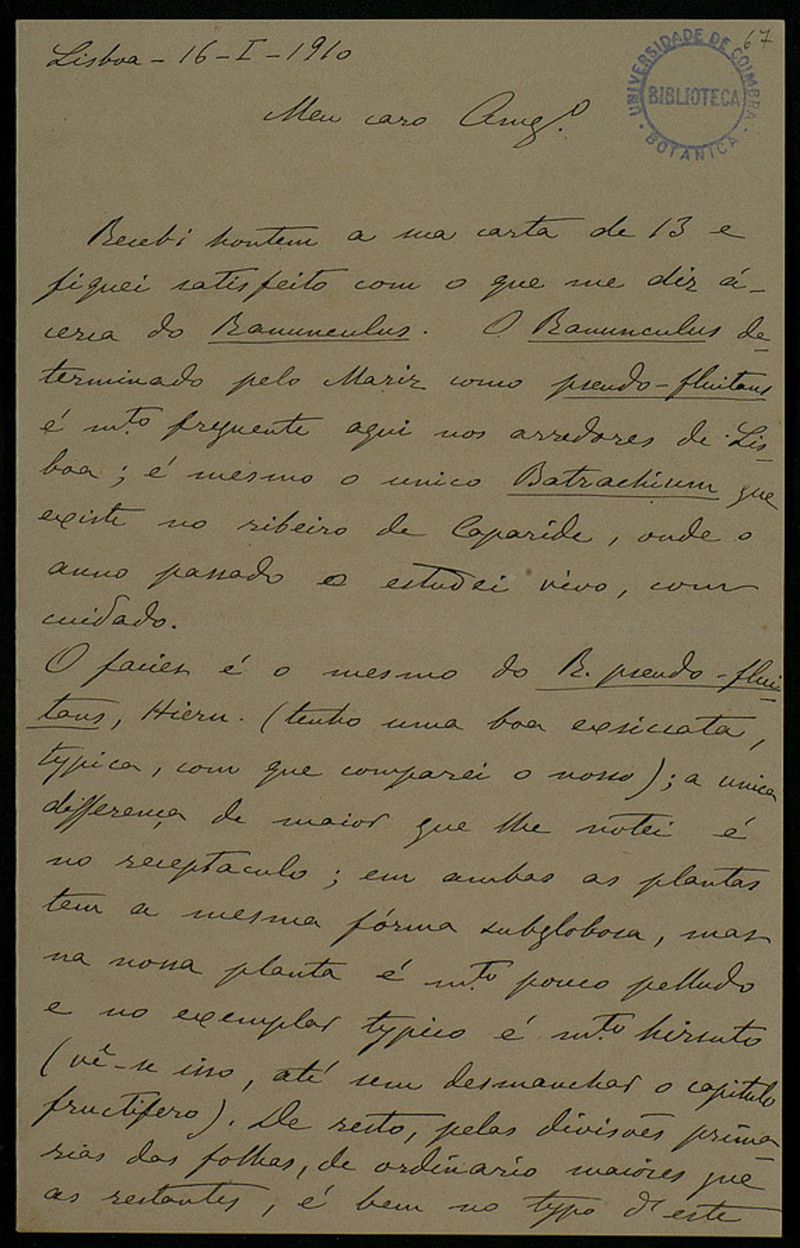 67
UNIVERSIDADE DE COIMBRA
BIBLIOTECA
BOTANICA
Lisboa - 16 - I - 1910
Meu caro Amgº.
Recebi hontem a sua carta de 13 e
fiquei satisfeito com o que me diz á-
cerca do Ranunculus. O Ranunculus de-
terminado pelo Mariz como pseudo-fluitans
é mto frequente aqui nos arredores de Lis-
boa; é mesmo o unico Batrachium que
existe no ribeiro de Caparide, onde o
anno passado o estudei vivo, com
cuidado.
O facies é o mesmo do R. pseudo-flui-
tans, Hiern. (tenho uma boa exsiccata,
typica, com que comparei o nosso); a unica
differença de maior que lhe notei é
no receptaculo; em ambas as plantas
tem a mesma fórma subglobosa, mas
na nossa planta é mto pouco pelludo
e no exemplar typico é mto hirsuto
(vê-se isso, até sem desmanchar o capitulo
fructifero). De resto, pelas divisões prima-
rias das folhas, de ordinario maiores que
as restantes, é bem no typo d'este